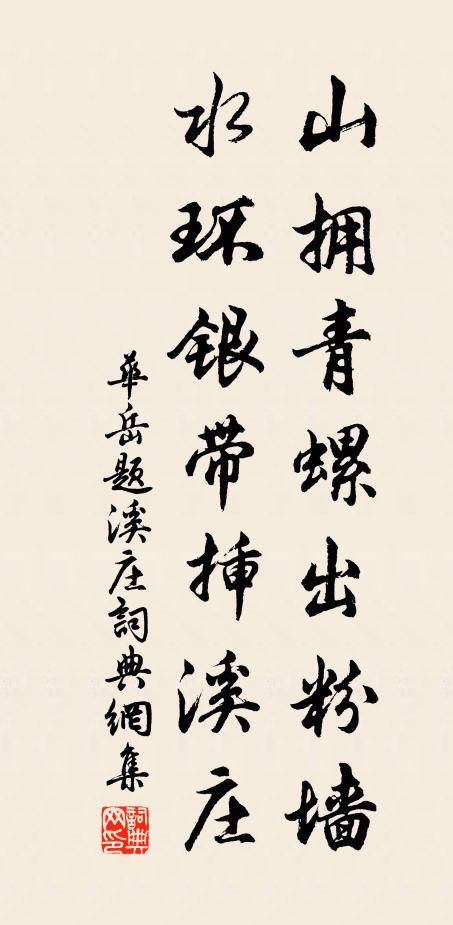 山拥青螺出粉墙
水环银带插溪庄
華岳题溪庄詞典網集
詞典网印